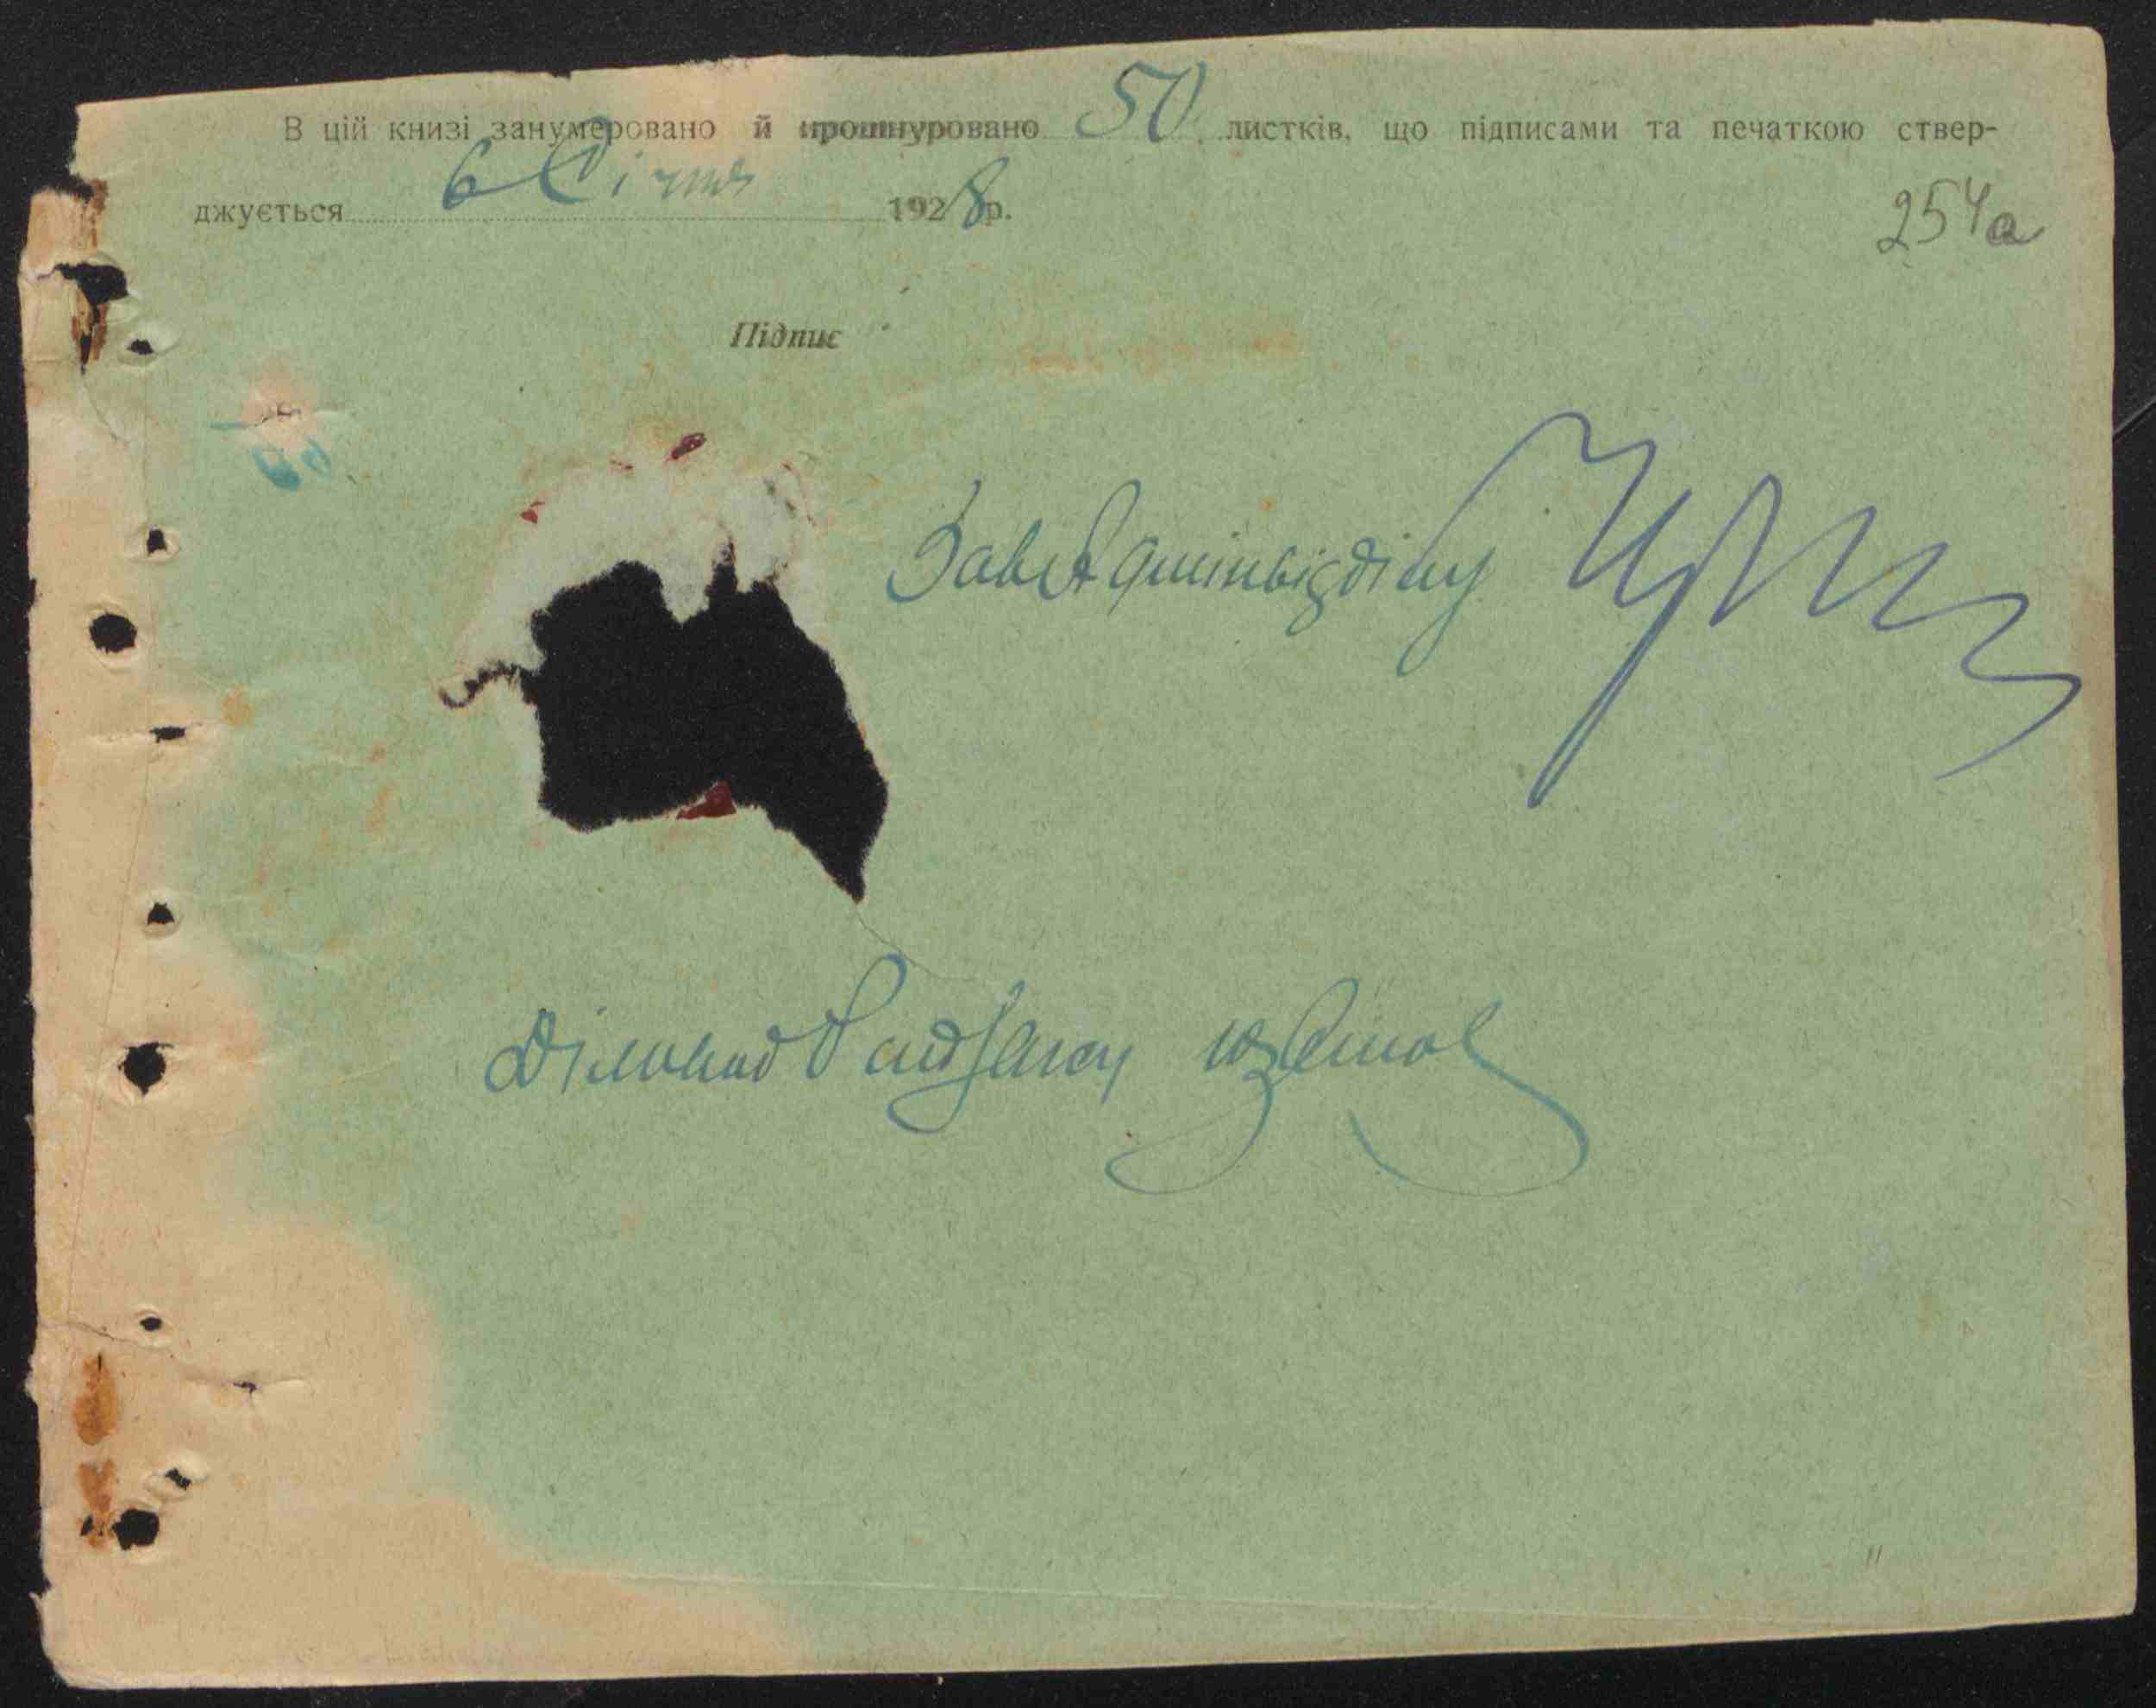 В цій книзі занумеровано й прошнуровано 50 листків, що підписами та печаткою ствер-
джується 6 Січня 1928 р.
254а
Підпис
Зав Адмінвідділу
Діловод